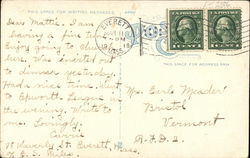 THIS SPACE FOR WRITING MESSAGES
THIS SPACE FOR ADDRESS ONLY
EVERETT
Dear Mattie. I am
having a fine time.
Enjoy going to church
here. Was invited out
to dinner yesterday.
Had a nice time. Went
to Epworth League in
the evening. Write to
me. Lovingly.
Carrie
Everett, Mass.
Mrs. Earle Meader
Bristol
Vermont
R.F.D. 2.